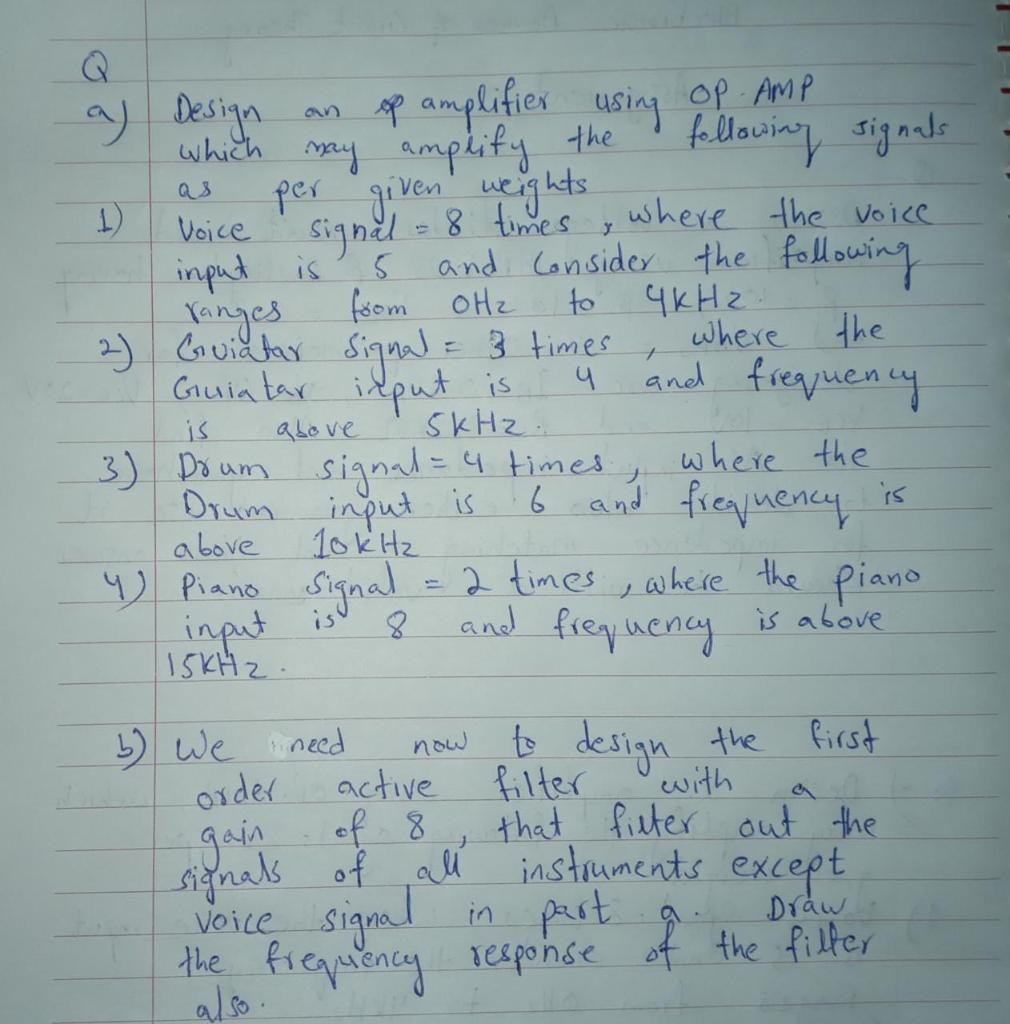 Q
a) Design an op amplifier using OP-AMP
which may amplify the following signals
as per given weights
1) Voice signal = 8 times, where the voice
input is 5 and Consider the following
ranges from 0Hz to 4kHz.
2) Guiatar Signal = 3 times, where the
Guiatar input is 4 and frequency
is above 5kHz.
3) Drum signal = 4 times, where the
Drum input is 6 and frequency is
above 10kHz
4) Piano Signal = 2 times, where the piano
input is 8 and frequency is above
15KHz.
b) We need now to design the first
order active filter with a
gain of 8, that filter out the
signals of all instruments except
voice signal in part a. Draw
the frequency response of the filter
also.